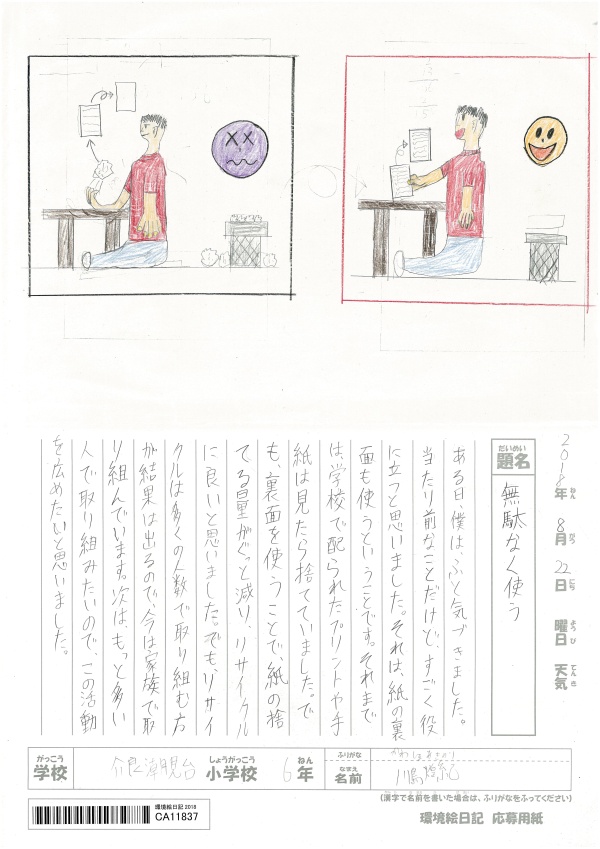 2018年 8月 22日 曜日 天気
ねん がつ にち ようび てんき
だいめい
題名 無駄なく使う
ある日僕は、ふと気づきました。
当たり前なことだけど、すごく役
に立つと思いました。それは、紙の裏
面も使うということです。それまで
は、学校で配られたプリントや手
紙は見たら捨てていました。で
も、裏面を使うことで、紙の捨
てる量がぐっと減り、リサイクル
に良いと思いました。でも、リサイ
クルは多くの人数で取り組む方
が結果は出るので、今は家族で取
り組んでいます。次は、もっと多い
人で取り組みたいので、この活動
を広めたいと思いました。
がっこう しょうがっこう ねん ふりがな
学校 小学校 6年
なまえ
名前 川島
(漢字で名前を書いた場合は、ふりがなをふってください)
環境絵日記 2018
CA11837
環境絵日記 応募用紙